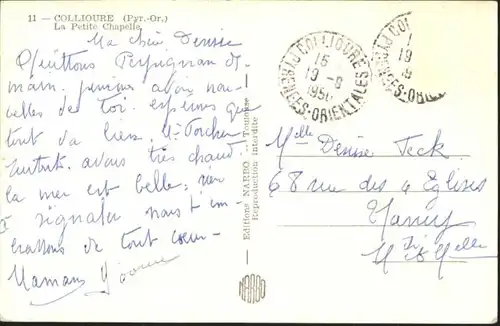 11 - COLLIOURE (Pyr.-Or.)
La Petite Chapelle
Ma chère Denise
Quittons Perpignan de-
main. pensions avoir nou-
velles de toi. espérons que
tout va bien.
avons très chaud
la mer est belle. rien
à signaler nous t'em-
brassons de tout cœur
Maman Yvonne
Editions NARBO - Toulouse
Reproduction interdite
NARBO
COLLIOURE
15
19-8
1950
PYRENEES-ORIENTALES
Melle Denise Teck
68 rue des 4 Eglises
Nancy
Mthe & Melle